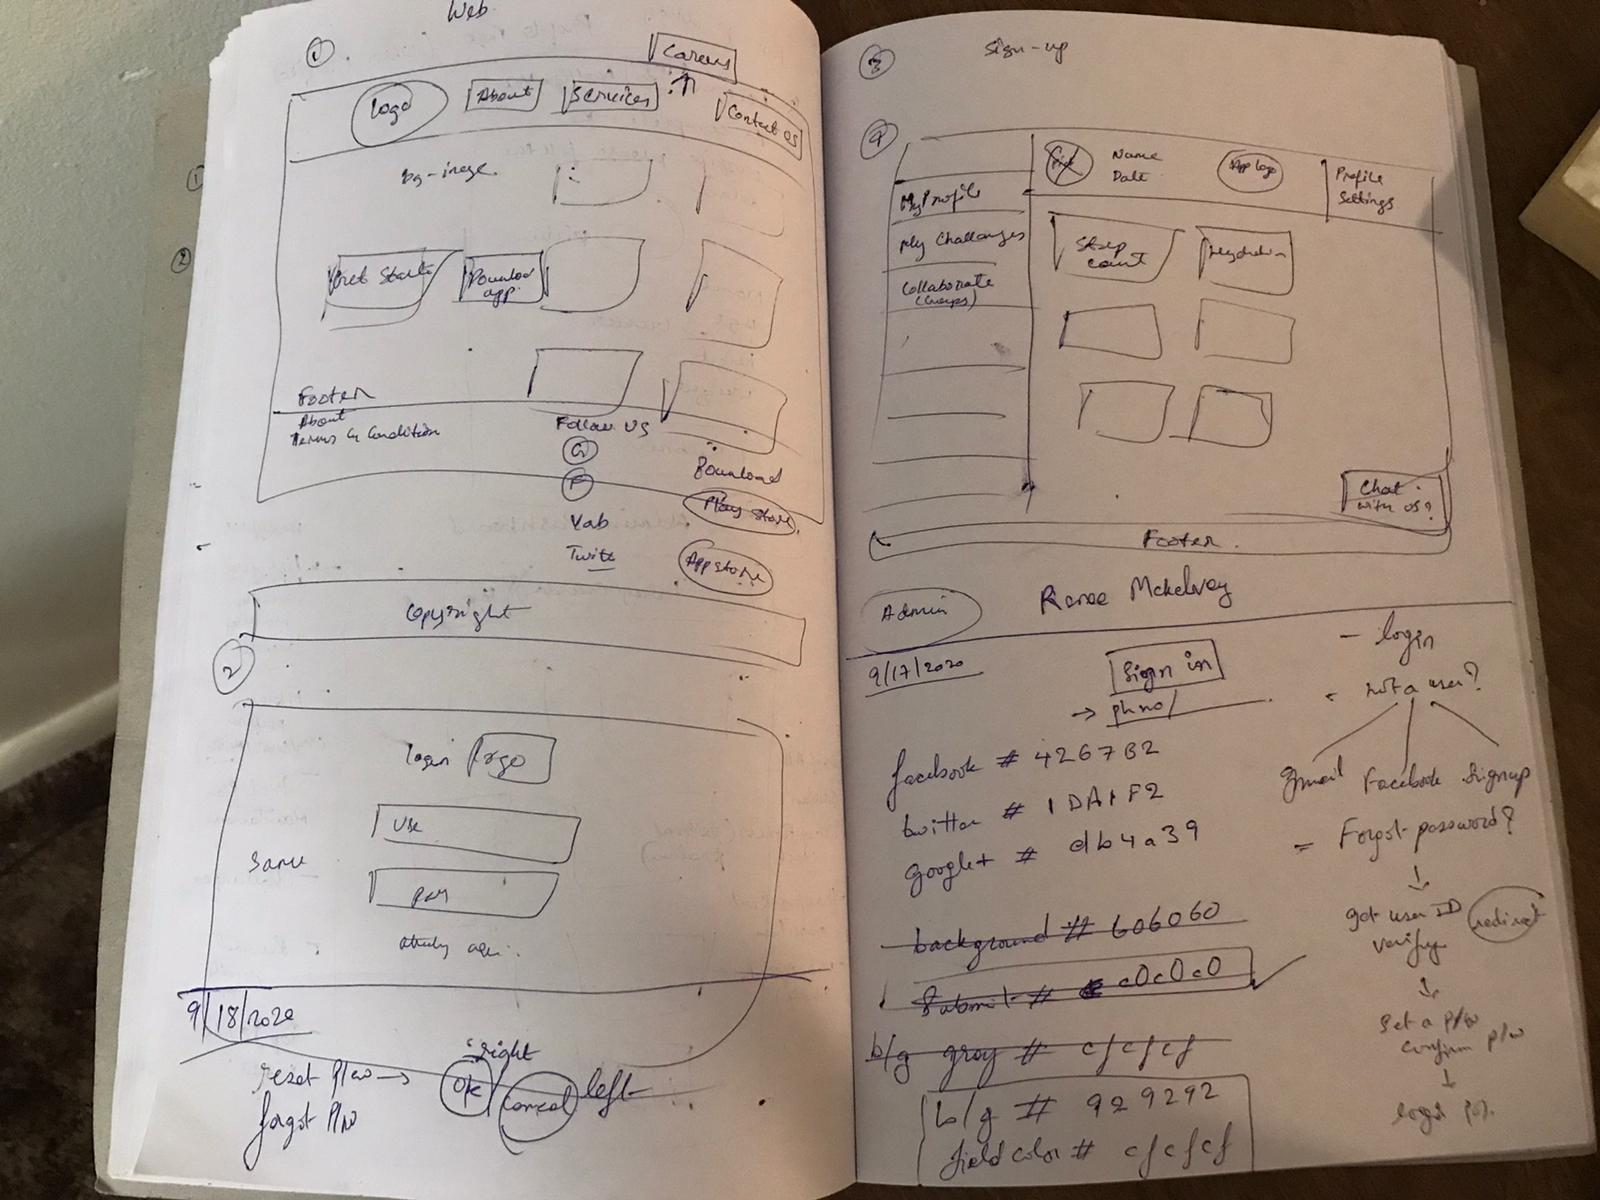 Web
1
Careers
Logo
About
Services
Contact us
bg-image
Get Started
Download
app
Footer
About
Terms & Condition
Follow us
G
F
Twitt
Download
Play Store
App store
Copyright
2
login logo
Same
9/18/2020
right
reset P/w → OK / Cancel left
forgot P/w
3
Sign-up
4
Name
Date
App logo
Profile
Settings
My Profile
My Challenges
Collaborate
(Groups)
Step
count
Hydration
Chat
with us?
Footer
Admin
Renee Mckelvey
9/17/2020
Sign in
→ ph no/
facebook # 4267B2
twitter # 1DA1F2
google+ # db4a39
background # 606060
Submit # c0c0c0
b/g gray # cfcfcf
b/g # 929292
field color # cfcfcf
- login
- not a user?
gmail Facebook Signup
= Forgot password?
↓
get user ID
verify
redirect
↓
Set a p/w
confirm p/w
↓